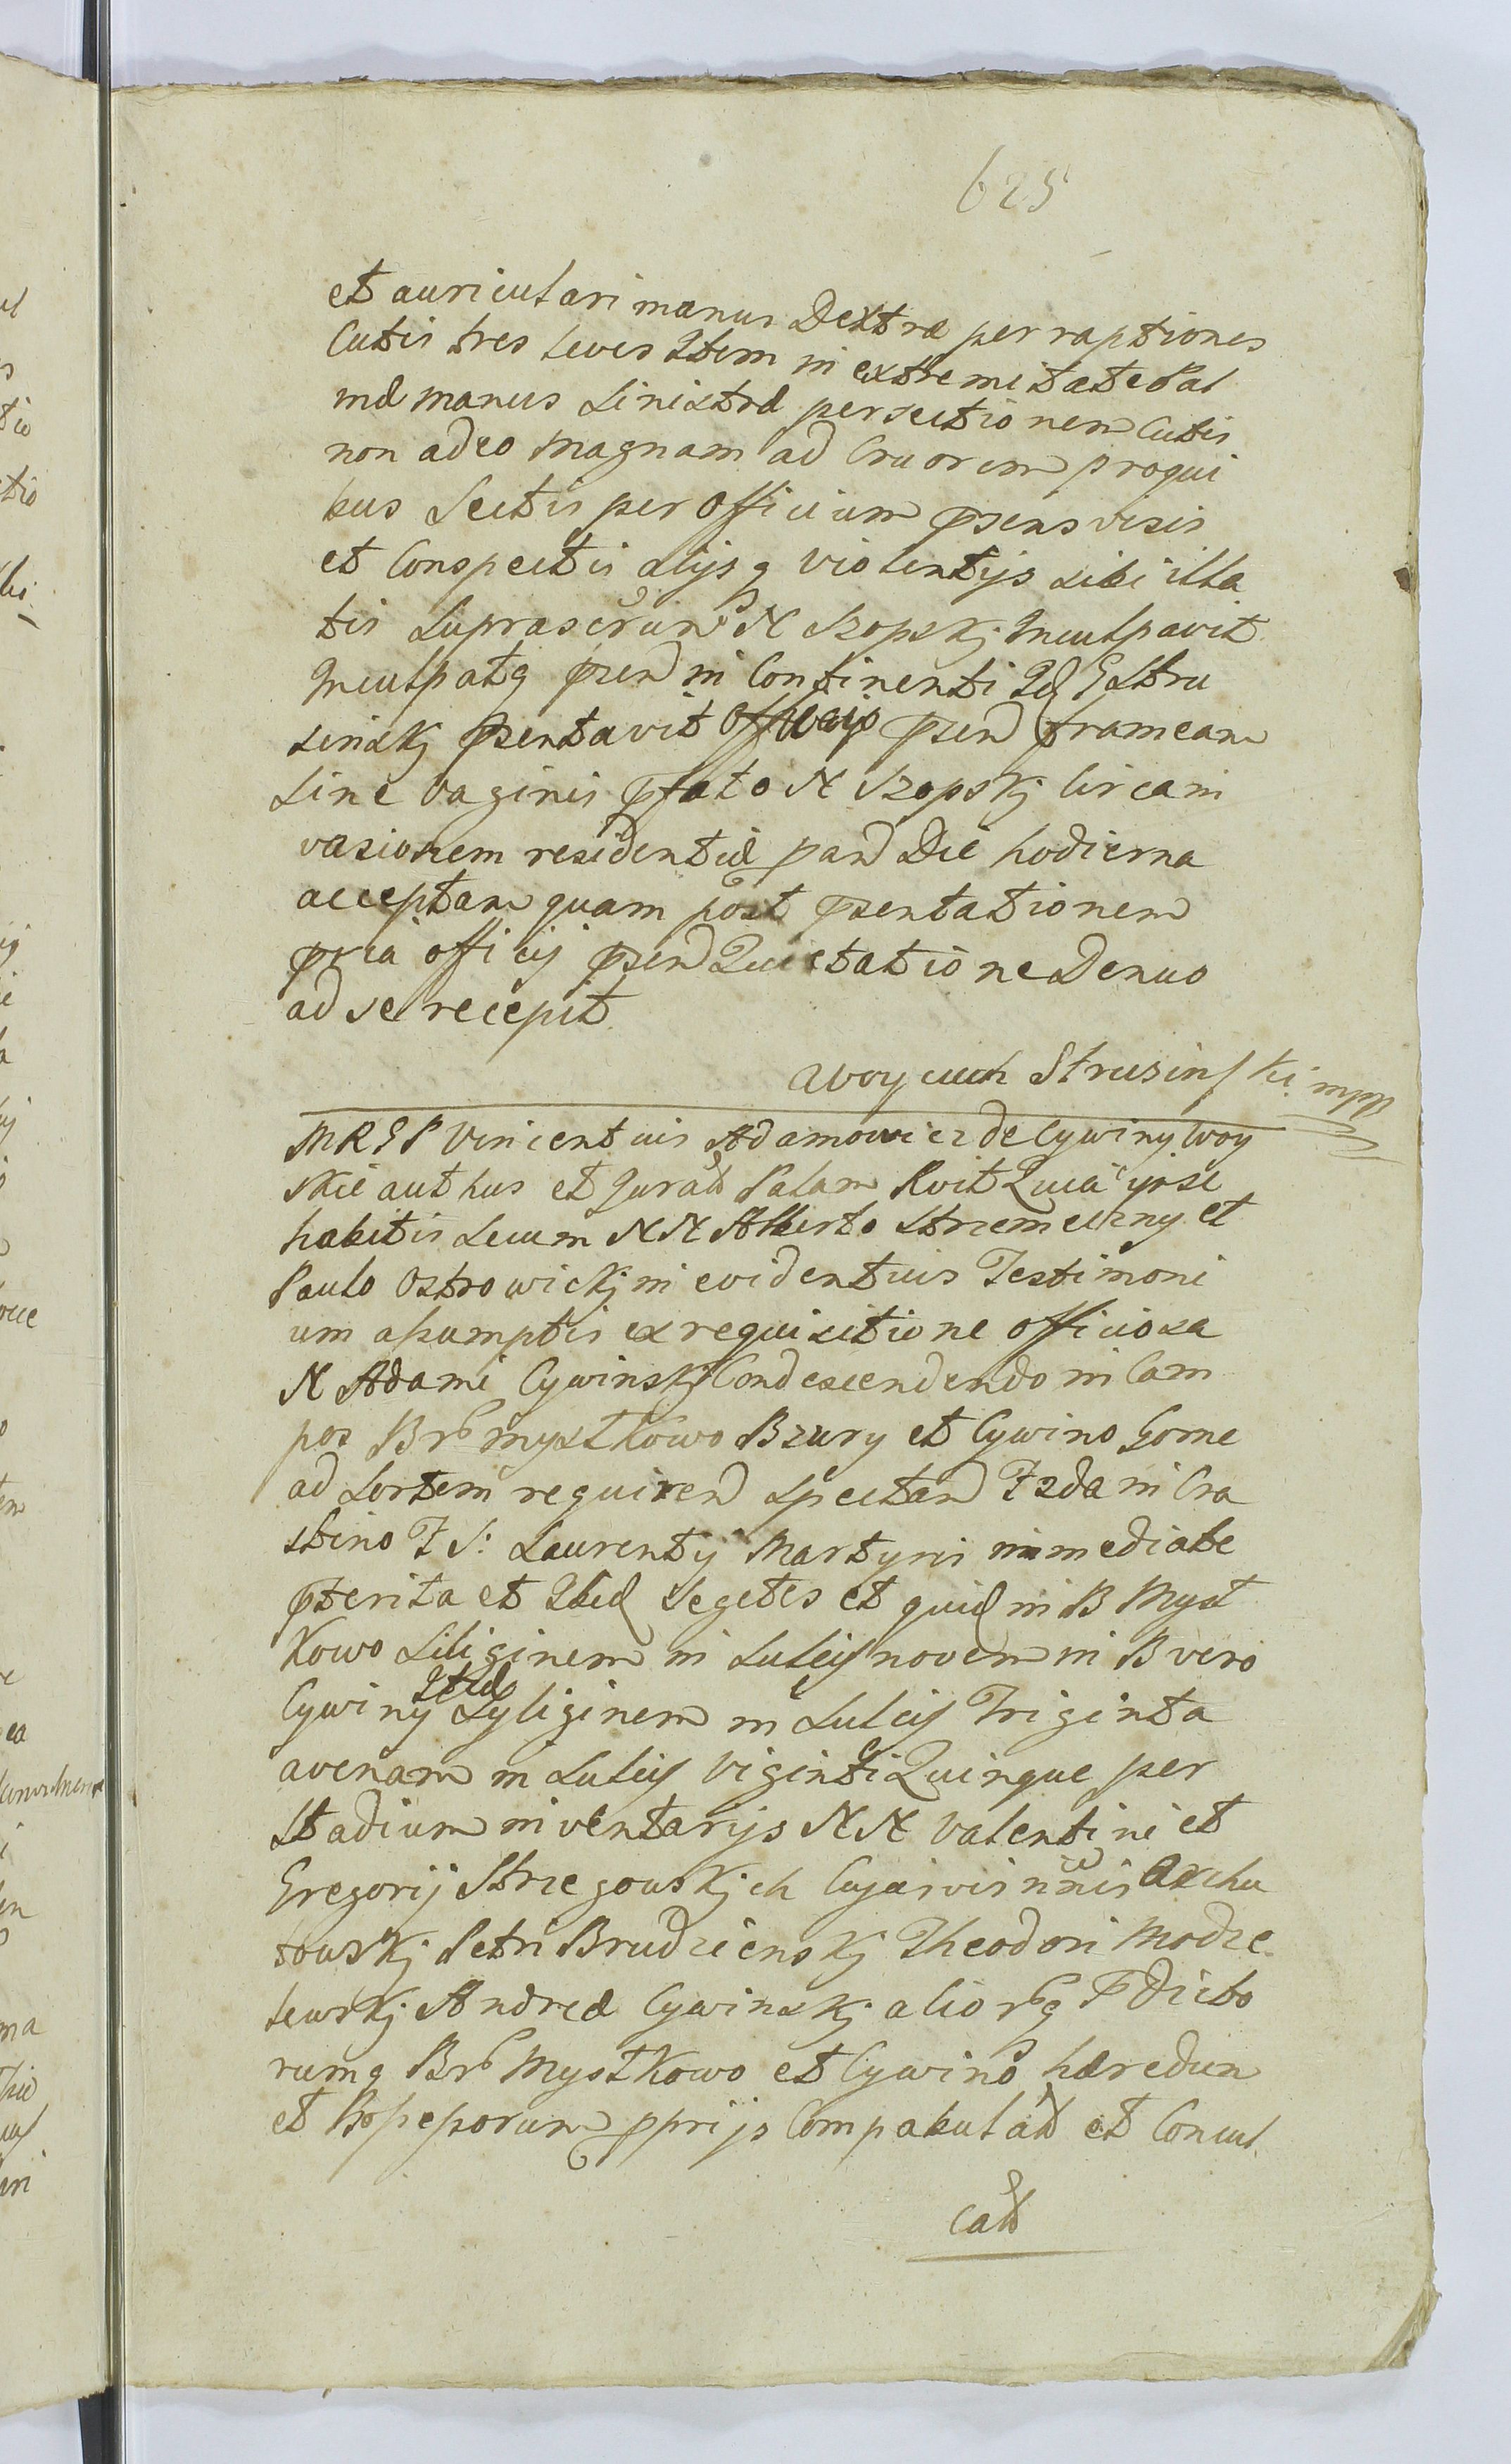 625
et auriculari manus Dextræ per raptiones
Cutis tres leves Item in extremitate Pal
mæ manus Sinistræ persectionem Cutis
non adeo magnam ad Cruorem proqui
bus Sectis per Officium psens visis
et Conspectis alijsq violentijs sibi illa
tis Suprascrum N Szopskj Inculpavit
Inculpatq psen in Continenti Id G Stru
sinskj psentavit Officio psen frameam
sine vaginis pfato N Szopskj Circa in
vasionem residentiæ pand Die hodierna
acceptam quam post psentationem
pvia officij psen Quietatione Denuo
ad se recepit
Woyciech Strusinski mpp
MRGP Vincentius Adamowicz de Cywiny Woy
skie authus et Jurad Palam Rvit Quia ipse
habitis secum NN Alberto Strzemeczny et
Paulo Ostrowickj in evidentius Testimoni
um assumptis ex requisitione officiosa
N Adami Cywinskj Condescendendo in Cam
pos Brb Mystkowo Bzury et Cywino Gorne
ad Sortem requiren spectan F 2da in Cra
stino F S: Laurentij Martyris immediate
pterita et Ibid Segetes et quid in B Myst
kowo Siliginem in Sulcis novem in B vero
Cywiny Syliginem in Sulcis Triginta
avenam in Sulcis viginti Quinque per
Stadium inventarijs NN Valentini et
Gregorij Strzegowskjch Cujusvis nnis
towskj Petri Brudzienskj Theodori Modze
lewskj Andreæ Cywinskj aliorbq Pdicto
rumq Brb Mystkowo et Cywino hæredum
et Possessorum pprijs Compabulad et Concul
cad